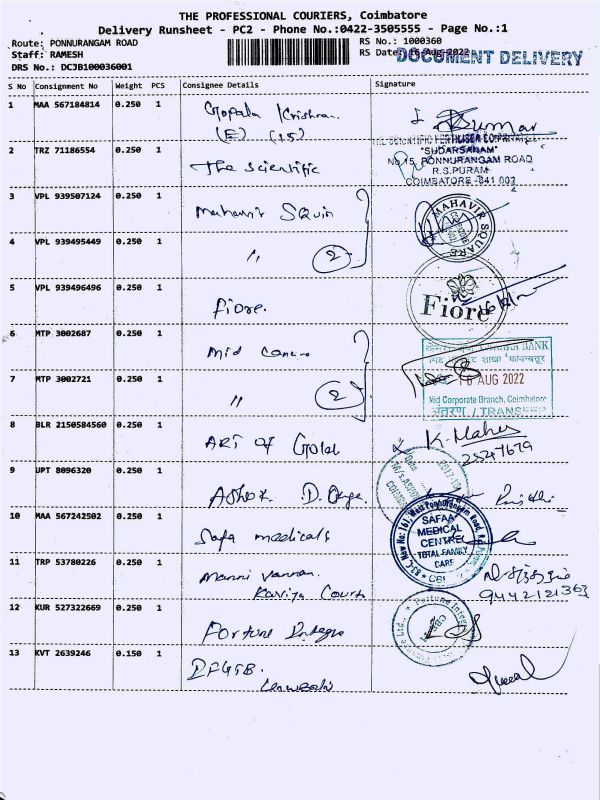 THE PROFESSIONAL COURIERS, Coimbatore
Delivery Runsheet - PC2 - Phone No.:0422-3505555 - Page No.:1
Route: PONNURANGAM ROAD
RS No.: 1000360
Staff: RAMESH
RS Date: 16-Aug-2022
DOCUMENT DELIVERY
DRS No.: DCJB100036001
S No Consignment No Weight PCS Consignee Details Signature
1 MAA 567184814 0.250 1 Gopala Krishna
(E) (15)
Kumar
THE SCIENTIFIC FERTILISER CO
2 TRZ 71186554 0.250 1 The Scientific
"SUDARSANAM"
NO 15, PONNURANGAM ROAD
R.S.PURAM
COIMBATORE -641 002
3 VPL 939507124 0.250 1 Mahavir Squir
MAHAVIR SQUARE
4 VPL 939495449 0.250 1 〃 2
5 VPL 939496496 0.250 1 Fiore.
Fiore
6 MTP 3002687 0.250 1 Mid
BANK
शाखा
7 MTP 3002721 0.250 1 〃 2
16 AUG 2022
Mid Corporate Branch, Coimbatore
अंतरण / TRANSFER
8 BLR 2150584560 0.250 1 ART OF Gold
K. Mahes
2547679
9 UPT 8096320 0.250 1 Ashok D.
10 MAA 567242502 0.250 1 Safa medicals
SAFAA
MEDICAL
CENTRE
TOTAL FAMILY
CARE
11 TRP 53780226 0.250 1 Manni Vannan
Kaviya Court
9442121363
12 KUR 527322669 0.250 1 Fortune Integra
13 KVT 2639246 0.150 1